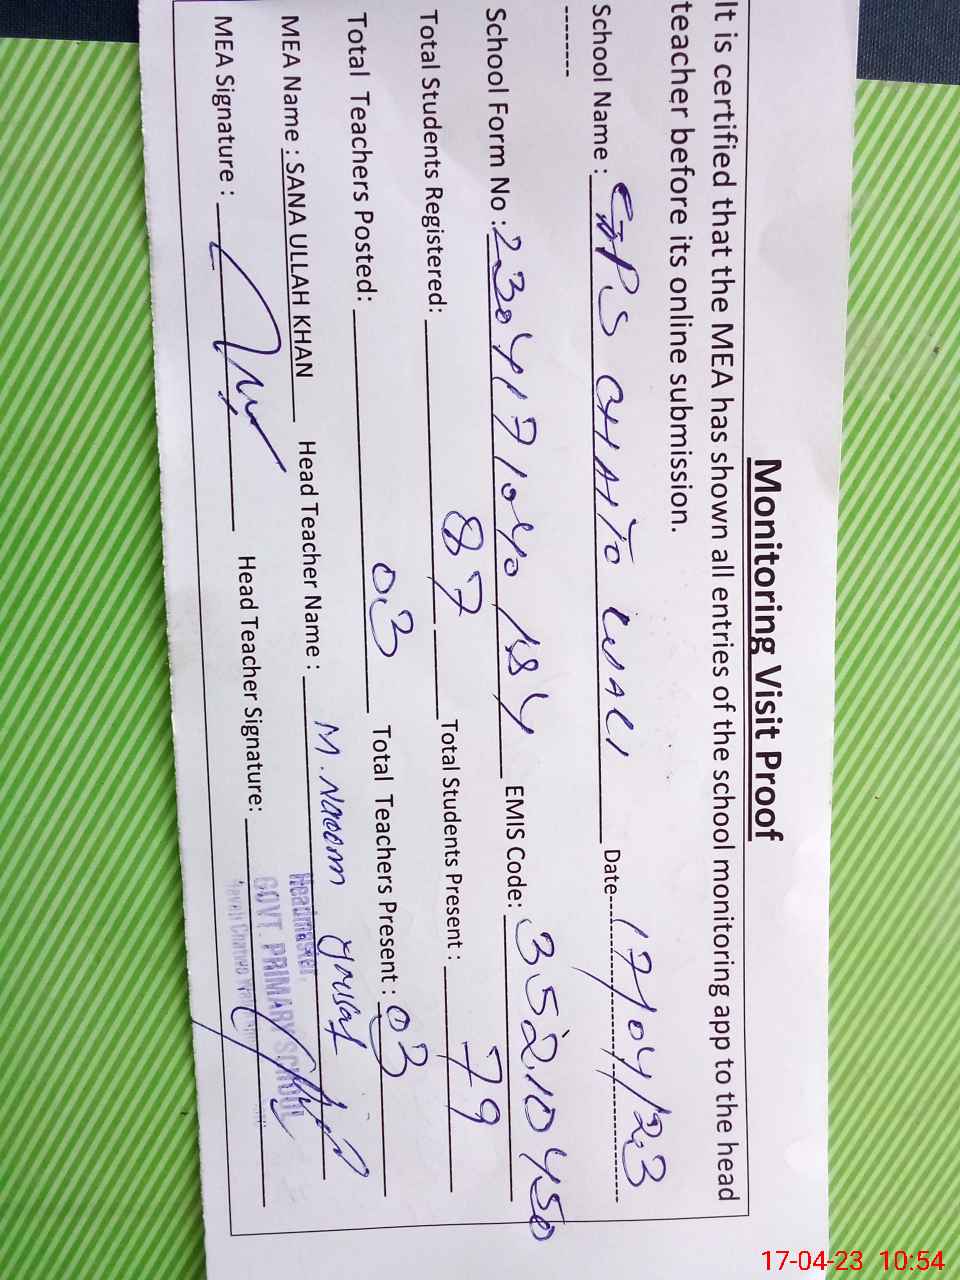 Monitoring Visit Proof
It is certified that the MEA has shown all entries of the school monitoring app to the head
teacher before its online submission.
School Name : GPS CHAHTO WALI Date 17/04/23
School Form No : 2304171040184 EMIS Code: 35210450
Total Students Registered: 87 Total Students Present : 79
Total Teachers Posted: 03 Total Teachers Present : 03
MEA Name : SANA ULLAH KHAN Head Teacher Name : M. Naeem Yousaf
MEA Signature : Head Teacher Signature:
Headmaster
GOVT. PRIMARY SCHOOL
17-04-23 10:54